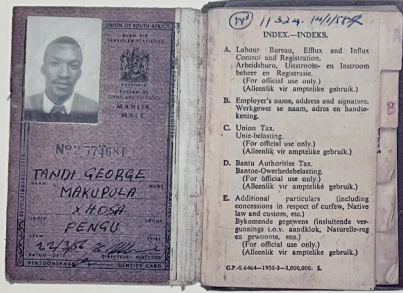 UNION OF SOUTH AFRICA
BURO VIR
SENSUS EN STATISTIEK
BUREAU OF
CENSUS AND STATISTICS
MANLIK
MALE
TANDI GEORGE
MAKUPULA
NAME
XHOSA
FENGU
22/3/56
DIREKTEUR - DIRECTOR
PERSOONSKAART
IDENTITY CARD
11524. 14/1/58
INDEX.—INDEKS.
A. Labour Bureau, Efflux and Influx
Control and Registration.
Arbeidsburo, Uitstroom- en Instroom
beheer en Registrasie.
(For official use only.)
(Alleenlik vir amptelike gebruik.)
B. Employer's name, address and signature.
Werkgewer se naam, adres en handte-
kening.
C. Union Tax.
Unie-belasting.
(For official use only.)
(Alleenlik vir amptelike gebruik.)
D. Bantu Authorities Tax.
Bantoe-Owerhedebelasting.
(For official use only.)
(Alleenlik vir amptelike gebruik.)
E. Additional particulars (including
concessions in respect of curfew, Native
law and custom, etc.)
Bykomende gegewens (insluitende ver-
gunnings i.o.v. aandklok, Naturelle-reg
en gewoonte, ens.)
(For official use only.)
(Alleenlik vir amptelike gebruik.)
G.P.-S.6464—1952-3—3,000,000. S.